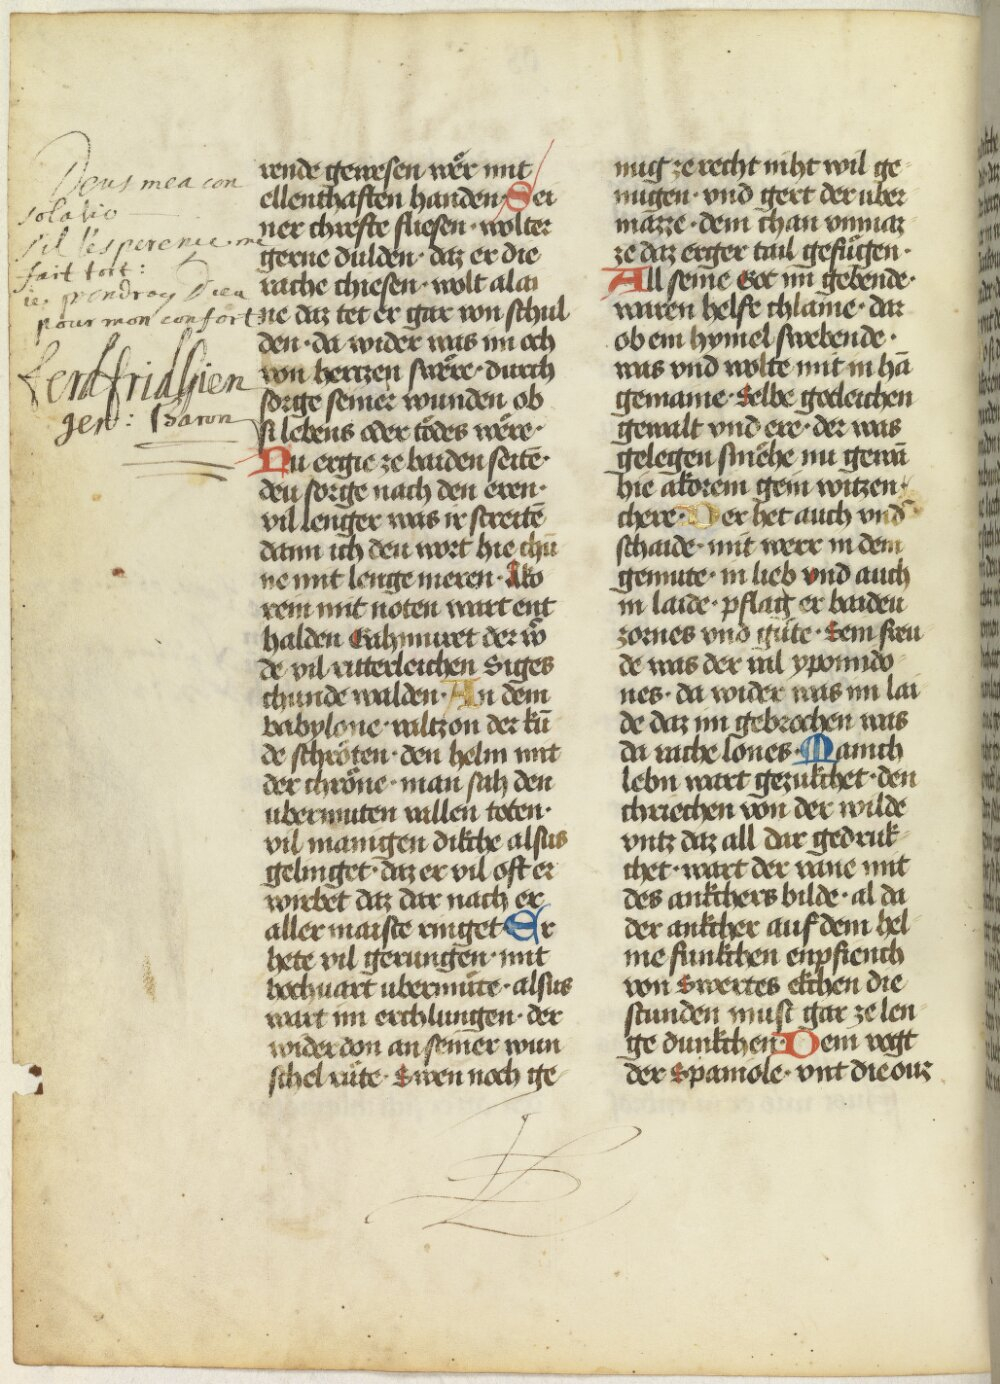 Deus mea con
solatio
S'il l'esperence me
fait tort:
ie prendray Dieu
pour mon confort
Baron
rende gewesen wër mit
ellenthaften handen · Sei
ner chrefte fliesen · wolter
gerne dulden · daz er die
rache chiesen · wolt alai
ne daz tet er gar von schul
den · da wider was im och
von hertzen swëre · durch
sorge seiner wunden ob
si lebens oder tödes wëre ·
Nu ergie ze baiden seitē ·
deu sorge nach den eren ·
vil lenger was ir streitē
dann ich deu wort hie chū
ne mit lenge meren · Ako
rein mit noten wart ent
halden Gahmuret der wͦ
de vil ritterleichen Siges
chunde walden · An dem
babylone · valtzon der kū
de schröten · den helm mit
der chröne · man sah den
ubermuten vallen toten ·
vil manigen dikche alsus
gelinget · daz er vil oft er
wirbet daz dar nach er
aller maiste ringet · Er
hete vil gerungen · mit
hochuart ubermüte · alsus
wart im erchlungen · der
widerdon an seiner wun
schel rüte · Swen noch ge
nug ze recht niht wil ge
nugen · vnd gert der uber
mazze · dem chan vnmaz
ze daz erger tail gefügen ·
All seine Got im gebende ·
waren helfe chlaine · daz
ob em hymel swebende ·
was vnd wolte mit in hā
gemaine · Selbe gotleichen
gewalt vnd ere · der was
gelegen smëhe nu gewā
hie akorein gein witzen
chere · Der het auch vnd
schaide · mit werr in dem
gemute · in lieb vnd auch
in laide · pflag er baideu
zornes vnd güte · Sein freu
de was der val ypomido
nes · da wider was im lai
de daz im gebrochen was
da rache lones · Manich
lebn wart gezukchet · den
chriechen von der wilde
vntz daz all dar gedruk
chet · wart der vane mit
des ankchers bilde · al da
der ankcher auf dem hel
me funkchen enpfiench
von Swertes ekchen die
stunden must gar ze len
ge dunkchen · Dem vogt
der Spaniole · vnt die ouz